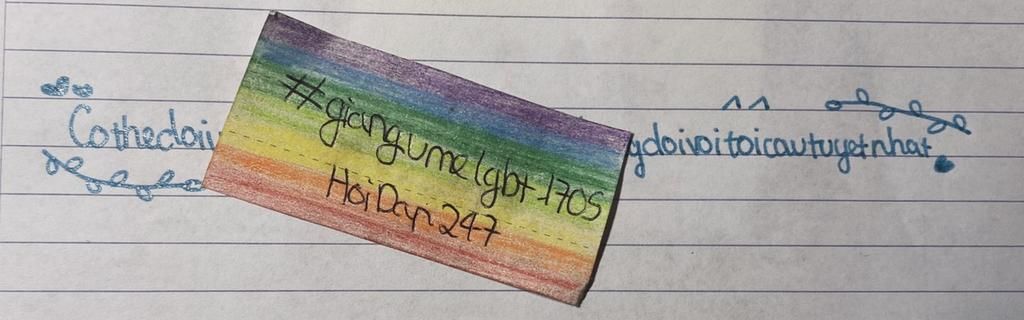 Cothedoi gdoivoitoicautuyetnhat
#giangumelgbt-1705
HoiDap247